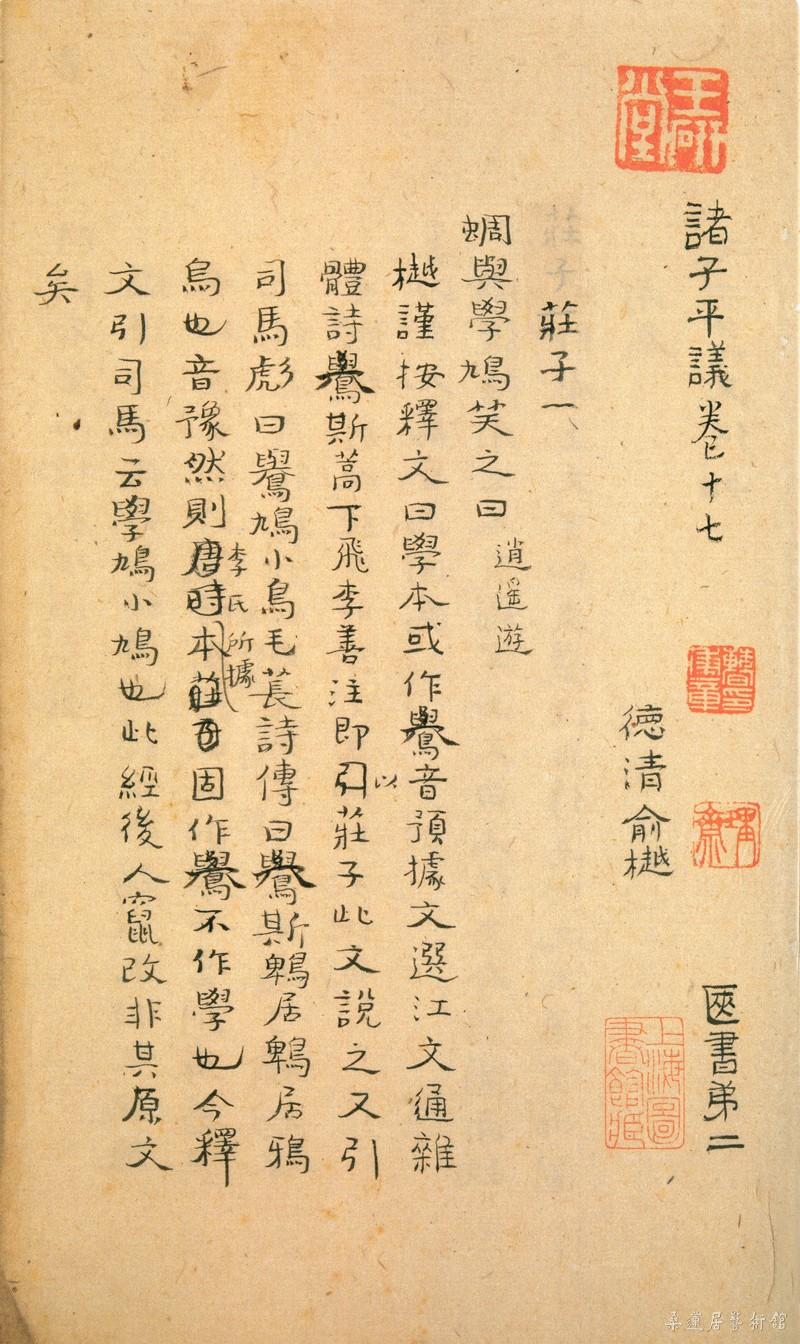 諸子平議卷十七
匧書弟二
德清俞樾
莊子一
蜩與學鳩笑之曰 逍遥遊
樾謹按釋文曰學本或作鷽音預據文選江文通雜
體詩鷽斯蒿下飛李善注即引以莊子此文說之又引
司馬彪曰鷽鳩小鳥毛萇詩傳曰鷽斯鵯居鵯居鴉
烏也音豫然則李氏所據本固作鷽不作學也今釋
文引司馬云學鳩小鳩也此經後人竄改非其原文
矣
上海圖書館藏
桑蓮居藝術館